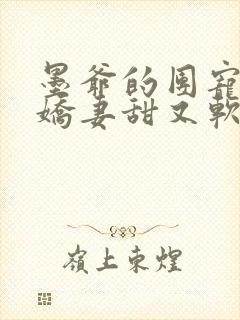 墨爺的團寵
嬌妻甜又軟
嶺上東煌